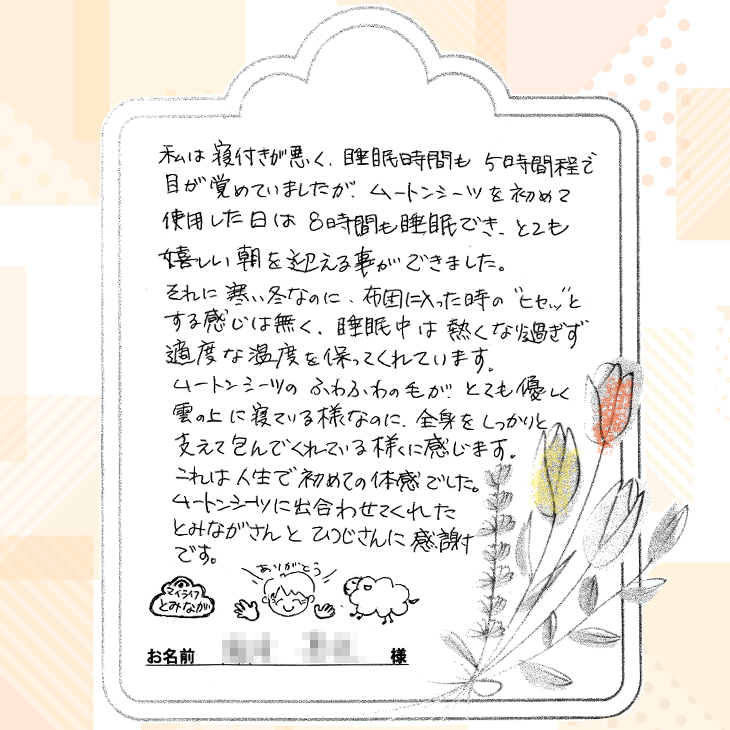 私は寝付きが悪く、睡眠時間も5時間程で
目が覚めていましたが、ムートンシーツを初めて
使用した日は8時間も睡眠でき、とても
嬉しい朝を迎える事ができました。
それに寒い冬なのに、布団に入った時の"ヒヤッ"と
する感じは無く、睡眠中は熱くなり過ぎず
適度な温度を保ってくれています。
ムートンシーツのふわふわの毛が、とても優しく
雲の上に寝ている様なのに、全身をしっかりと
支えて包んでくれている様に感じます。
これは人生で初めての体感でした。
ムートンシーツに出合わせてくれた
とみながさんとひつじさんに感謝
です。
ありがとう
マイライフ
とみなが
お名前 様